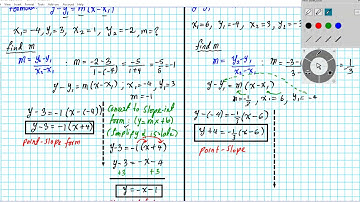 y - y₁ = m(x - x₁)
x₁=-4, y₁=3, x₂=1, y₂=-2, m=?
find m
m = y₂-y₁ / x₂-x₁ : m = -2-3 / 1-(-4) = -5 / 1+4 = -5/5 = -1
y-y₁ = m(x-x₁), x₁=-4, y₁=3
m=-1
y-3=-1(x-(-4))
y-3=-1(x+4)
point-slope form
Convert to slope-int
form: (y=mx+b)
y-3=-1(x+4)
y-3=-x-4
+3 +3
y=-x-1
x₁=6, y₁=-4, x₂=3, y₂=-3
find m
m = y₂-y₁ / x₂-x₁
y-y₁=m(x-x₁)
m=-1/3, x₁=6, y₁=-4
y-(-4)=-1/3(x-6)
y+4=-1/3(x-6)
point-slope